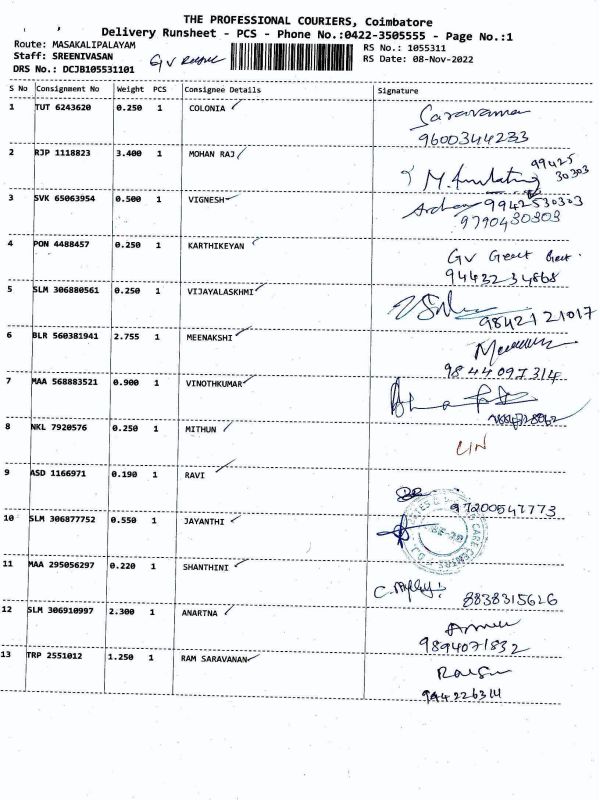 THE PROFESSIONAL COURIERS, Coimbatore
Delivery Runsheet - PCS - Phone No.:0422-3505555 - Page No.:1
Route: MASAKALIPALAYAM
RS No.: 1055311
Staff: SREENIVASAN
RS Date: 08-Nov-2022
DRS No.: DCJB105531101
S No Consignment No Weight PCS Consignee Details Signature
1 TUT 6243620 0.250 1 COLONIA Saravana
9600344233
2 RJP 1118823 3.400 1 MOHAN RAJ 99425
30303
3 SVK 65063954 0.500 1 VIGNESH 9942530303
9790430303
4 PON 4488457 0.250 1 KARTHIKEYAN GV
9443234868
5 SLM 306880561 0.250 1 VIJAYALASKHMI
9842121017
6 BLR 560381941 2.755 1 MEENAKSHI
9844097314
7 MAA 568883521 0.900 1 VINOTHKUMAR
8 NKL 7920576 0.250 1 MITHUN LIN
9 ASD 1166971 0.190 1 RAVI
97200547773
10 SLM 306877752 0.550 1 JAYANTHI
11 MAA 295056297 0.220 1 SHANTHINI
8838315626
12 SLM 306910997 2.300 1 ANARTNA
9894071832
13 TRP 2551012 1.250 1 RAM SARAVANAN
944226314